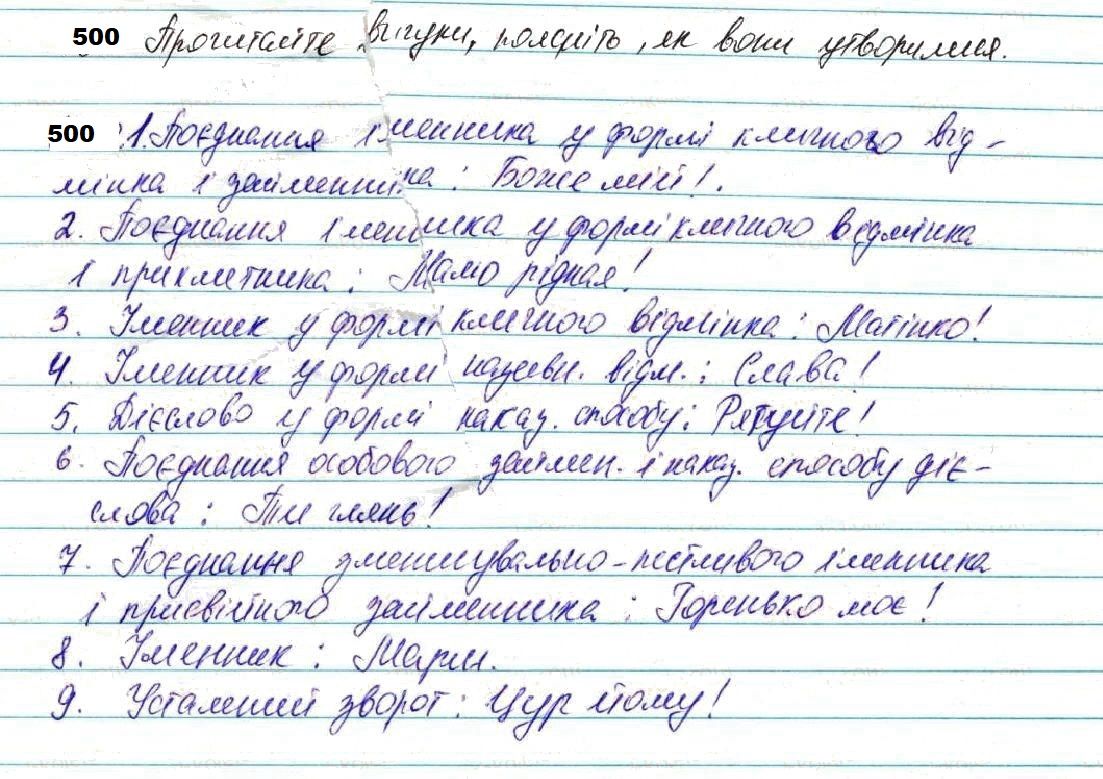 500 Прочитайте вигуки, поясніть, як вони утворилися.
500 1. Поєднання іменника у формі кличного від-
мінка і займенника: Боже мій!.
2. Поєднання іменника у формі кличного відмінка
і прикметника: Мамо рідная!
3. Іменник у формі кличного відмінка: Матінко!
4. Іменник у формі називн. відм.: Слава!
5. Дієслово у формі наказ. способу: Рятуйте!
6. Поєднання особового займен. і наказ. способу діє-
слова: Ти глянь!
7. Поєднання зменшувально-пестливого іменника
і присвійного займенника: Горенько моє!
8. Іменник: Марш.
9. Усталений зворот: Цур йому!